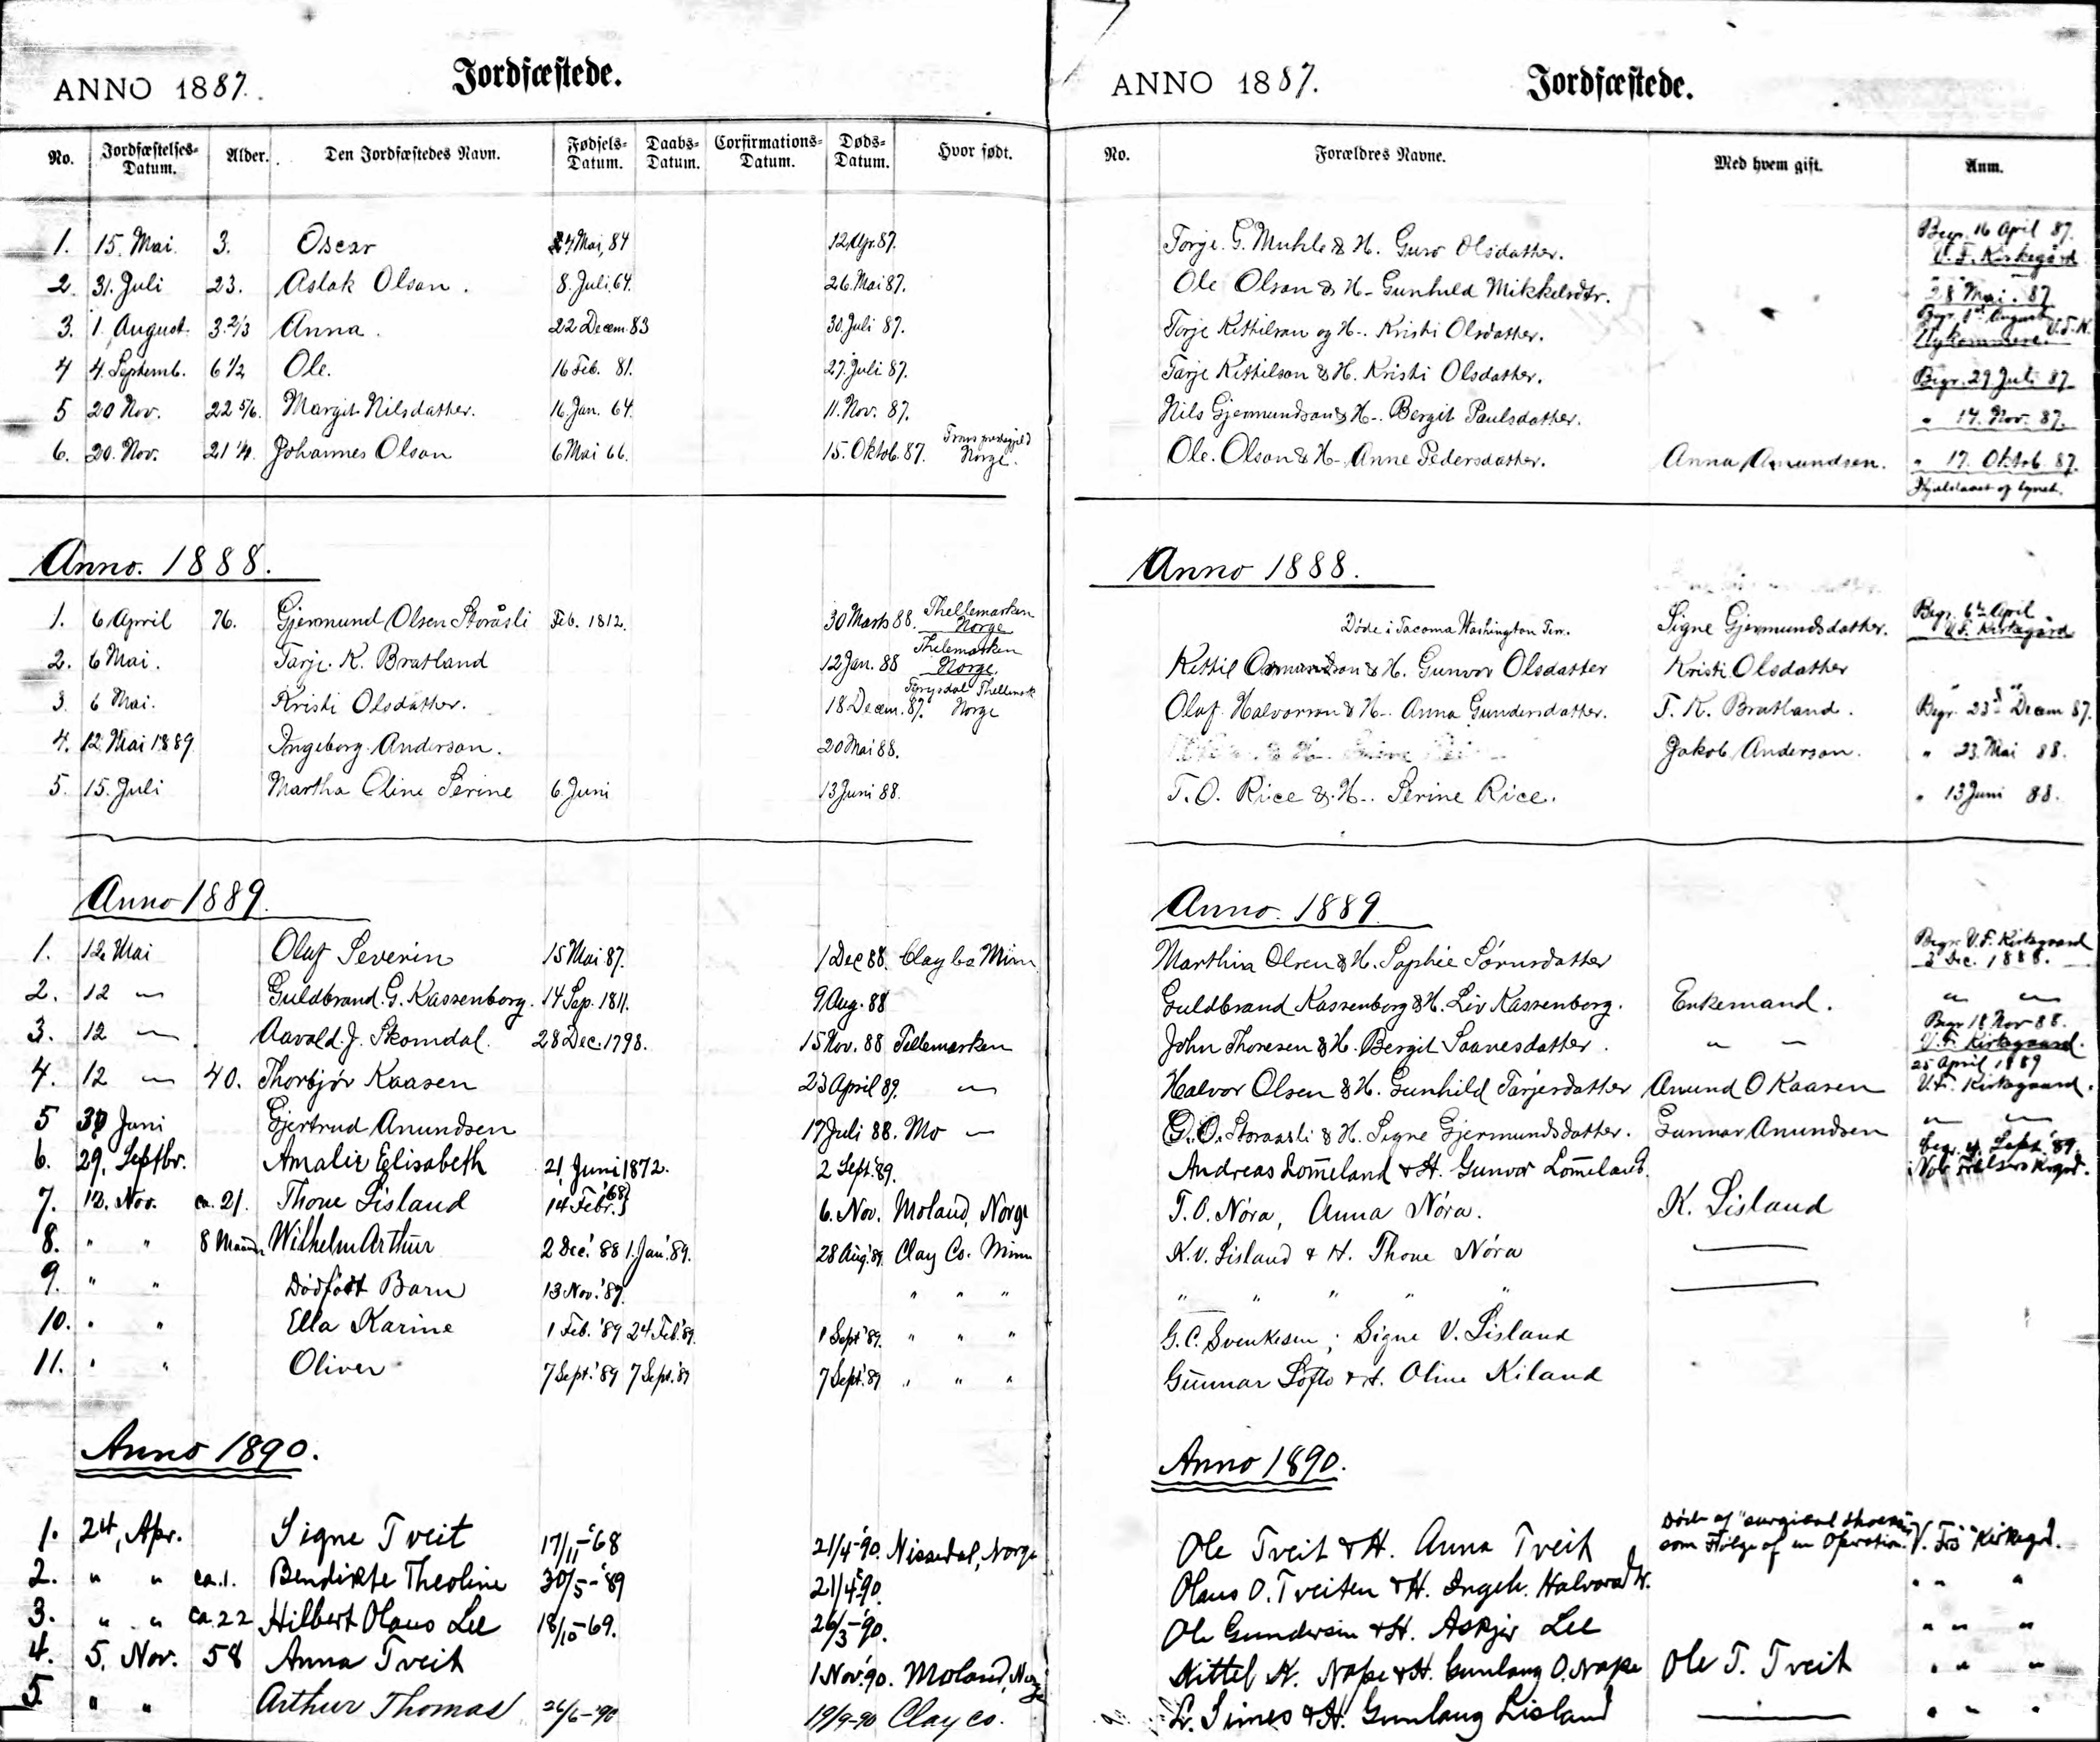 ANNO 1887.
Jordfæstede.
No. Jordfæstelses-Datum. Alder. Den Jordfæstedes Navn. Fødsels-Datum. Daabs-Datum. Corfirmations-Datum. Døds-Datum. Hvor født.
1. 15. Mai. 3. Oscar 24 Mai, 84 12 Apr. 87.
2. 31. Juli 23. Aslak Olson. 8. Juli 64. 26. Mai 87.
3. 1. August. 3.2/3 Anna. 22 Decem. 83 30. Juli 87.
4 4. Septemb. 6 1/2 Ole. 16 Feb. 81. 27. Juli 87.
5 20 Nov. 22 5/6. Margit Nilsdather. 16. Jan. 64. 11. Nov. 87.
6. 20. Nov. 21 1/4. Johannes Olson 6 Mai 66. 15. Oktob. 87. Norge.
Anno. 1888.
1. 6 April 76. Gjermund Olsen Storåsli Feb. 1812. 30 Marts 88. Thellemarken Norge
2. 6 Mai. Tarje. K. Bratland 12 Jan. 88 Thelemarken Norge.
3. 6 Mai. Kristi Olsdather. 18 Decem. 87. Fyrysdal Thellemark Norge
4. 12 Mai 1889 Ingeborg Anderson. 20 Mai 88.
5. 15. Juli Martha Oline Serine 6. Juni 13 Juni 88.
Anno 1889.
1. 12 Mai Oluf Severin 15 Mai 87. 1 Dec 88. Clay Co Minn
2. 12 " Guldbrand. G. Kassenborg. 14 Sep. 1811. 9 Aug. 88
3. 12 " Aavold. J. Skomdal. 28 Dec. 1798. 15 Nov. 88 Tellemarken
4. 12 " 40. Thorbjör Kaasen 23 April 89. "
5 30 Juni Gjertrud Anundsen 17 Juli 88. Mo "
6. 29. Septbr. Amalie Elisabeth 21 Juni 1872. 2 Sept. '89.
7. 12. Nov. ca. 21. Thone Lisland 14 Febr. '68 6. Nov. Moland, Norge
8. " " 8 Maaned Wilhelm Arthur 2 Dec. '88 1. Jan. '89. 28 Aug. '89. Clay Co. Minn
9. " " Dödfödt Barn 13 Nov. '89. " " "
10. " " Ella Karine 1 Feb. '89 24 Feb. '89. 1 Sept '89. " " "
11. " " Oliver 7 Sept. '89 7 Sept. '89 7 Sept. '89 " " "
Anno 1890.
1. 24, Apr. Signe Tveit 17/11-'68 21/4-'90. Nissedal, Norge
2. " " ca. 1. Bendikte Theoline 30/5-'89 21/4-'90.
3. " " ca. 22 Hilbert Olaus Lee 18/10-69. 26/3-'90.
4. 5. Nov. 58 Anna Tveit 1 Nov. '90. Moland, Norge
5. " " Arthur Thomas 26/6-'90 19/9-90 Clay co.
ANNO 1887.
Jordfæstede.
No. Forældres Navne. Med hvem gift. Anm.
Torje. G. Muhle & H. Guro Olsdather. Begr. 16 April 87. V. F. Kirkegård
Ole Olson & H- Gunhild Mikkelsdtr. 28 Mai. 87
Torje Kittilson og H-. Kristi Olsdather. Begr. 1st August V.F.K.
Tarje Kittilson & H. Kristi Olsdather. Begr. 29 Juli 87
Nils Gjermundson & H-. Bergit Paulsdather. " 14. Nov. 87.
Ole. Olson & H-. Anne Pedersdather. Anna Amundsen. " 17. Oktob. 87.
Anno 1888.
Døde i Tacoma Washington Terr. Signe Gjermundsdather. Begr. 6te April V. F. Kirkegård
Kittil Osmundson & H. Gunvor Olsdatter Kristi Olsdather
Olaf. Halvorson & H-. Anna Gundersdather. T. K. Bratland. Begr. 23d Decem 87.
Jakob Anderson. " 23. Mai 88.
T. O. Rice & H-. Serine Rice. " 13 Juni 88.
Anno. 1889
Marthin Olsen & H. Sophie Sörnsdatter Begr. V. F. Kirkegaard 3 Dec. 1888.
Guldbrand Kassenborg & H. Liv Kassenborg. Enkemand. " "
John Thoresen & H. Bergit Saavesdatter. " " Begr 18 Nov 88. V. F. Kirkegaard.
Halvor Olsen & H. Gunhild Tarjesdatter Anund O Kaasen 25 April 1889 V. F. Kirkegaard.
G. O. Storaasli & H. Signe Gjermundsdatter. Gunnar Anundsen " "
Andreas Lom̄eland & H. Gunvor Lom̄eland. Begr. 4. Sept. '89.
T. O. Nóra, Anna Nóra. K. Lisland
K. V. Lisland & H. Thone Nóra
" " " " "
G. C. Svenkesen; Signe V. Lisland
Gunnar Lofto & H. Oline Kiland
Anno 1890.
Ole Tveit & H. Anna Tveit Döde af "surgical shock" som Fölge af en Operation. V. Frs Kirkegd.
Olaus O. Tveiten & H. Ingeb. Halvorsdtr. " " "
Ole Gundersen & H. Askjer Lee " " "
Kittel K. Nape & H. Gunlaug O. Nape Ole T. Tveit " " "
L. Simes & H. Gunlaug Lisland " " "